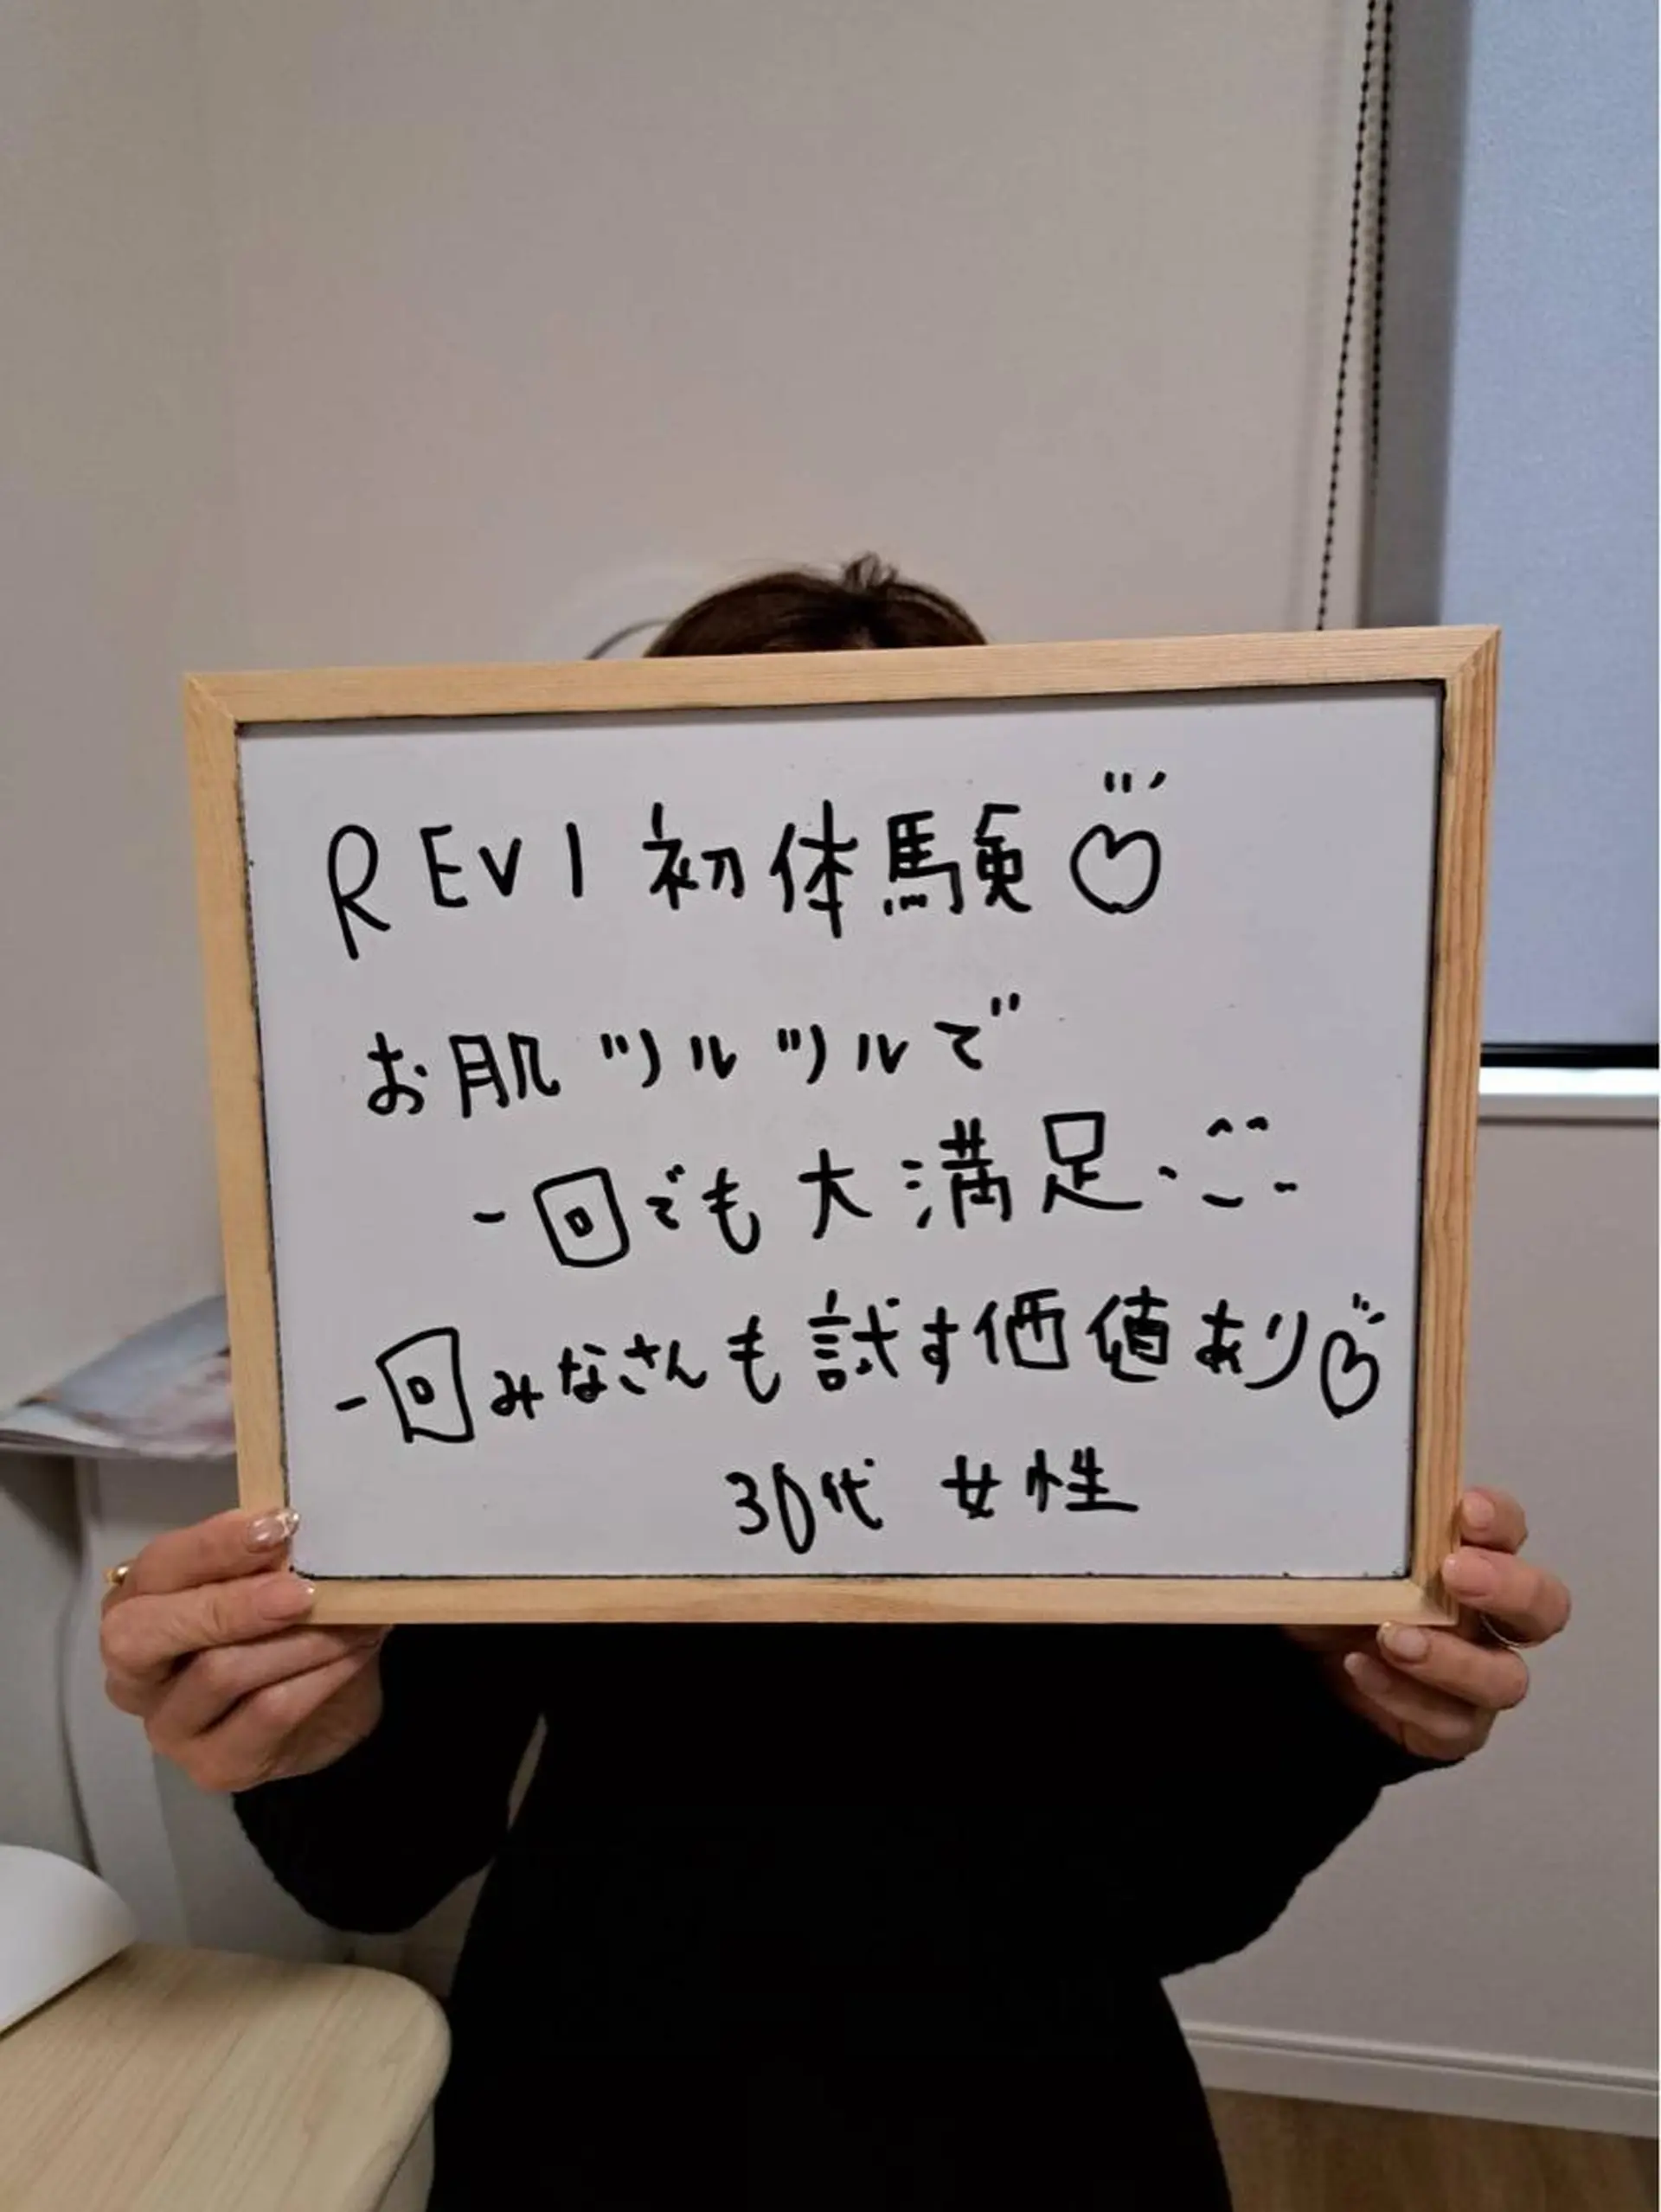 REVI初体験♡
お肌ツルツルで
一回でも大満足
一回みなさんも試す価値あり♡
30代 女性